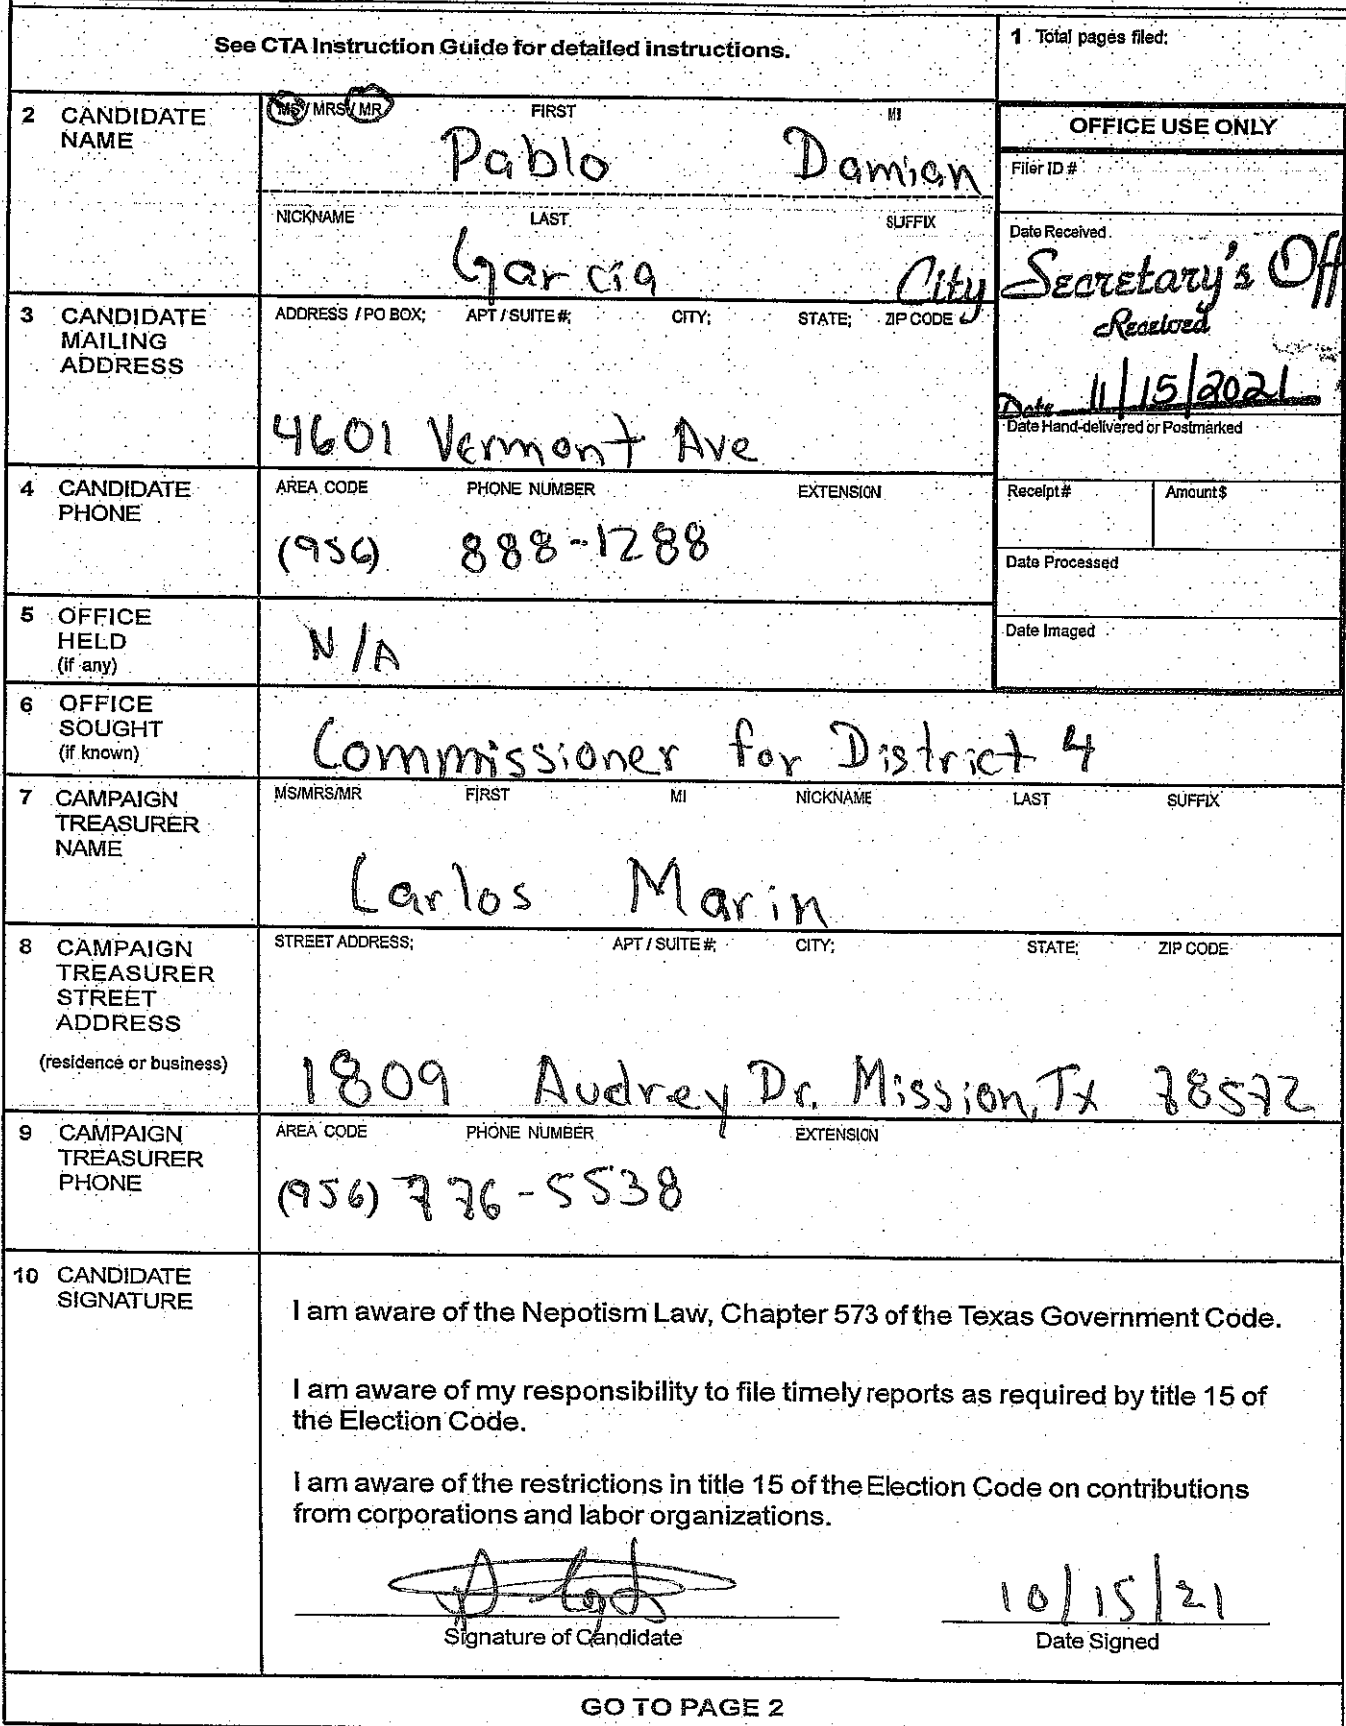 See CTA Instruction Guide for detailed instructions.
1 Total pages filed:
2 CANDIDATE NAME
MS / MRS / MR FIRST MI
Pablo Damian
NICKNAME LAST SUFFIX
Garcia
OFFICE USE ONLY
Filer ID #
Date Received
City Secretary's Off
Received
Date 11/15/2021
Date Hand-delivered or Postmarked
Receipt # Amount $
Date Processed
Date Imaged
3 CANDIDATE MAILING ADDRESS
ADDRESS / PO BOX; APT / SUITE #; CITY; STATE; ZIP CODE
4601 Vermont Ave
4 CANDIDATE PHONE
AREA CODE PHONE NUMBER EXTENSION
(956) 888-1288
5 OFFICE HELD (if any)
N/A
6 OFFICE SOUGHT (if known)
Commissioner for District 4
7 CAMPAIGN TREASURER NAME
MS/MRS/MR FIRST MI NICKNAME LAST SUFFIX
Carlos Marin
8 CAMPAIGN TREASURER STREET ADDRESS
(residence or business)
STREET ADDRESS; APT / SUITE #; CITY; STATE; ZIP CODE
1809 Audrey Dr. Mission, Tx 78572
9 CAMPAIGN TREASURER PHONE
AREA CODE PHONE NUMBER EXTENSION
(956) 776-5538
10 CANDIDATE SIGNATURE
I am aware of the Nepotism Law, Chapter 573 of the Texas Government Code.
I am aware of my responsibility to file timely reports as required by title 15 of
the Election Code.
I am aware of the restrictions in title 15 of the Election Code on contributions
from corporations and labor organizations.
10/15/21
Signature of Candidate Date Signed
GO TO PAGE 2